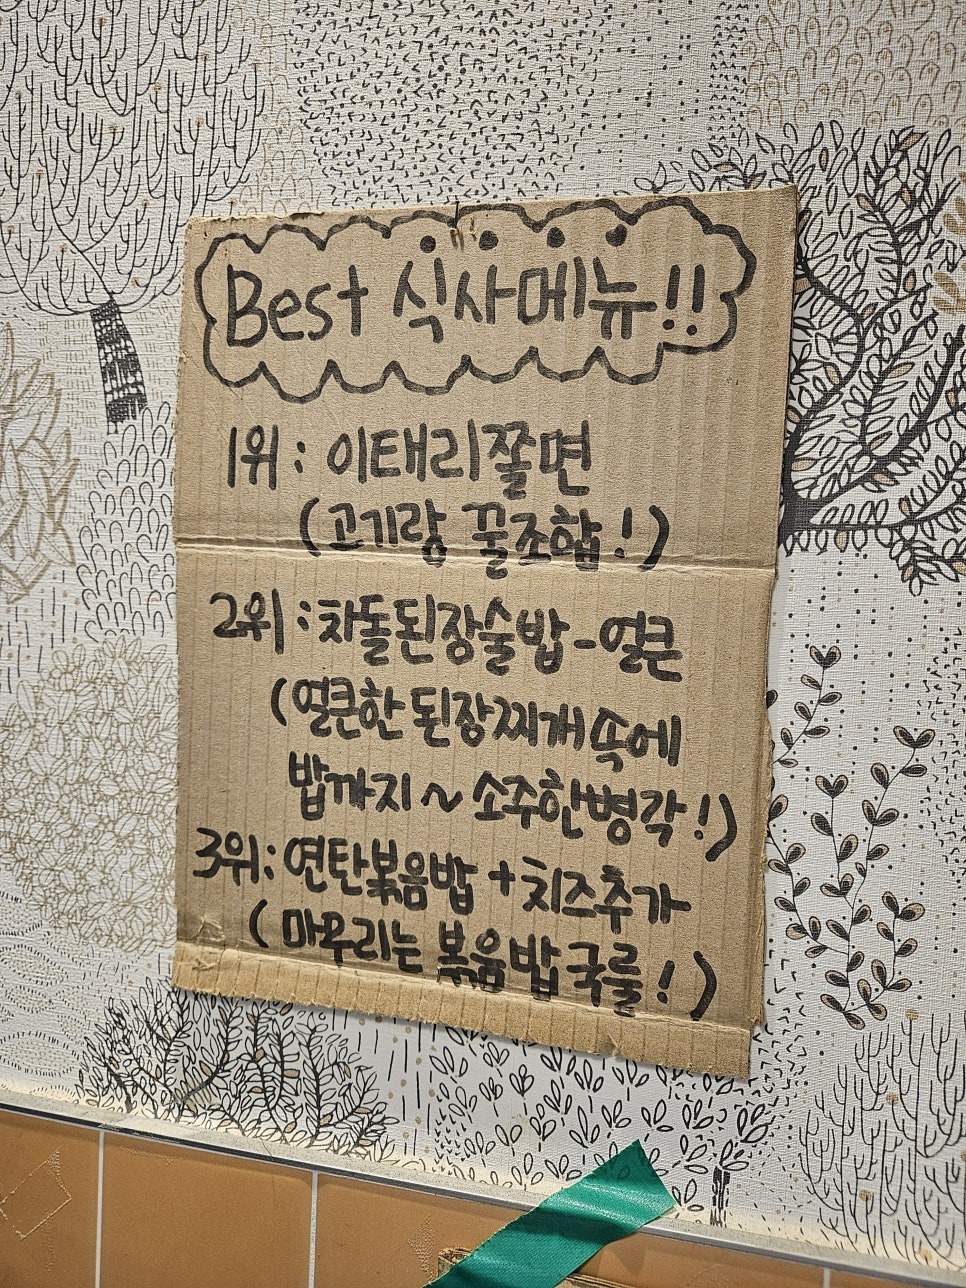 Best 식사메뉴!!
1위 : 이태리쫄면
(고기랑 꿀조합!)
2위 : 차돌된장술밥-얼큰
(얼큰한 된장찌개속에
밥까지~ 소주한병각!)
3위: 연탄볶음밥 +치즈추가
(마무리는 볶음밥국룰!)